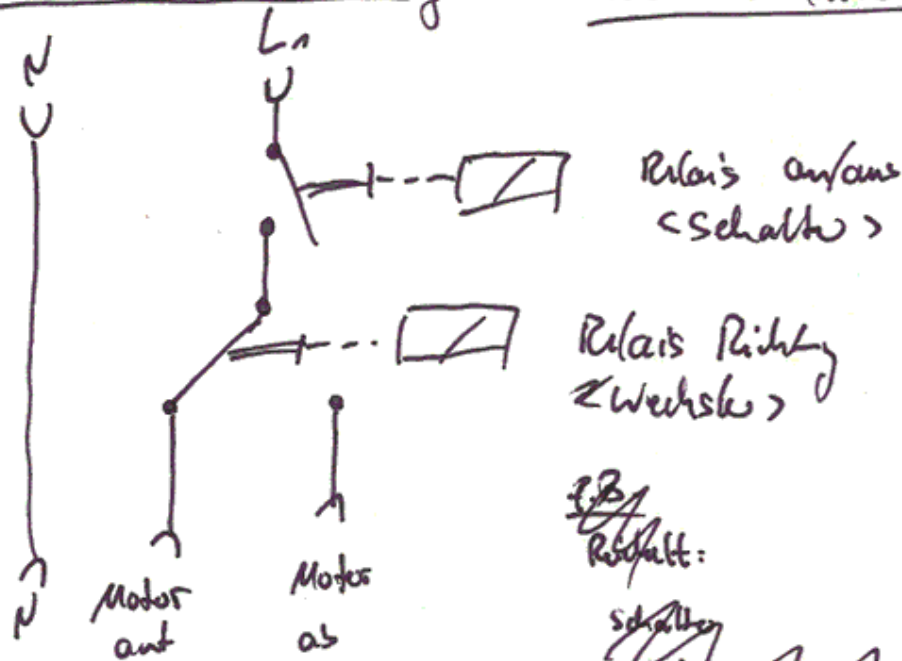 N
L1
Relais an/aus
<Schalter>
Relais Richtung
<Wechsler>
z.B
Schalter
N
Motor
auf
Motor
ab